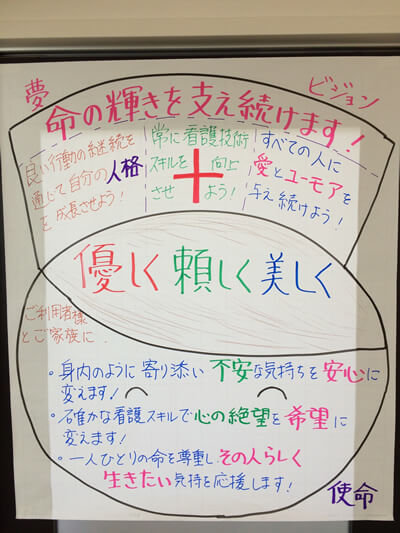 夢
ビジョン
命の輝きを支え続けます!
良い行動の継続を
通じて自分の人格
を成長させよう!
常に看護技術
スキルを向上
させよう!
すべての人に
愛とユーモアを
与え続けよう!
優しく頼しく美しく
ご利用者様
とご家族に
・身内のように寄り添い不安な気持ちを安心に
変えます!
・確かな看護スキルで心の絶望を希望に
変えます!
・一人ひとりの命を尊重しその人らしく
生きたい気持を応援します!
使命